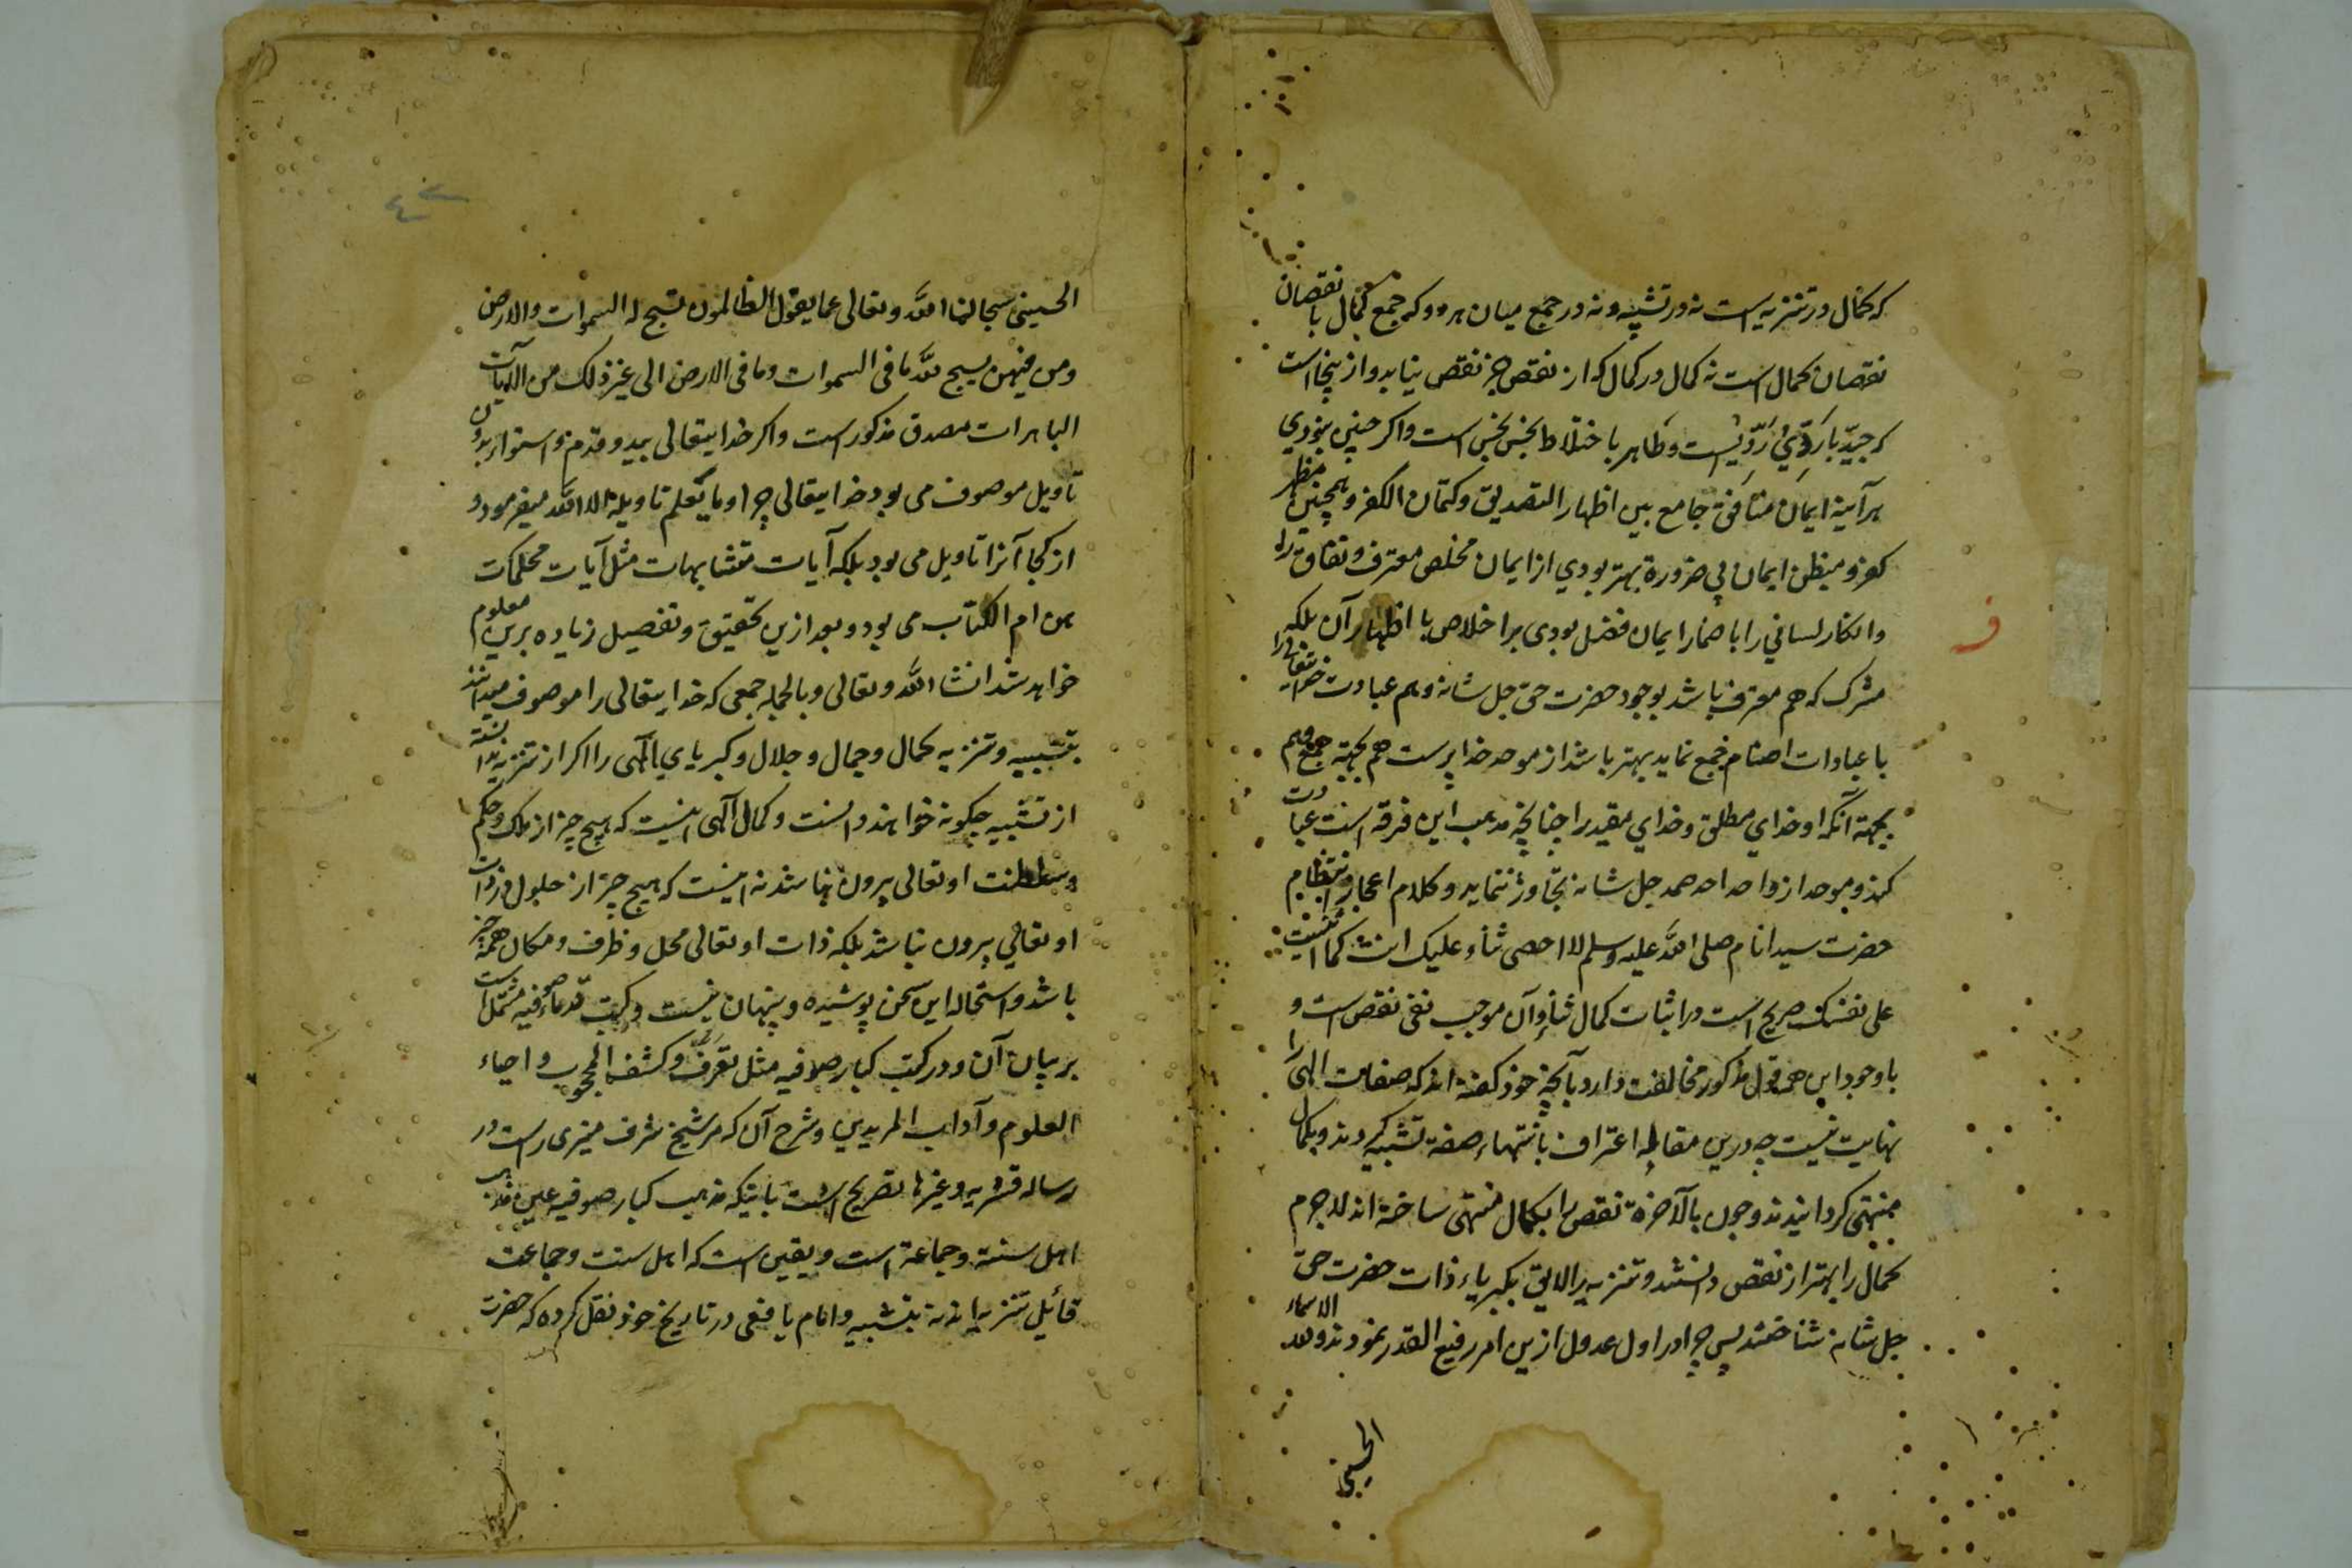 که کمال در تنزیه است نه در تشبیه و نه در جمع میان هر دو که جمع کمال با نقصان
نقصان کمال است نه کمال در کمال که از نقص جز نقص نیاید و از ینجا است
که جیّد با رَدّیْ رَدّیْست و طاهر باختلاط نجس نجس است و اکر چنین بنودی
هر آیینه ایمان منافق جامع بین اظهار التصدیق و کتمان الکفر و همچنین مظهر
کفر و مبطن ایمان بی ضرورة بهتر بودی از ایمان مخلص معترف و نفاق را
و انکار لسانی را با ضمار ایمان فضل بودی بر اخلاص با اظهار آن بلکه
مشرک که هم معترف باشد بوجود حضرت حق جل شانه و هم عبادت خدایتعالی را
با عبادات اصنام جمع نماید بهتر باشد از موحد خدا پرست هم بجهة جمع و هم
بجهة آنکه او خدای مطلق و خدای مقید را چنانچه مذهب این فرقه است عبادت
کند و موحد از واحد احد صمد جل شانه تجاوز ننماید و کلام اعجاز انتظام
حضرت سید انام صلی الله علیه وسلم لا احصی ثناء علیک انت کما اثنیت
علی نفسک صریح است در اثبات کمال ثناء و آن موجب نفی نقص است و
با وجود این همه قول مذکور مخالفت دارد بآنچه خود کفته اند که صفات الهی را
نهایت نیست چه درین مقابله اعتراف بانتهاء صفة تشبیه کردند و بکمال
منتهی کردانیدند و چون بالآخرة نقص را بکمال منتهی ساخته اند لاجرم
کمال را بهتر از نقص دانستند و تنزیه را لایق بکبریاء ذات حضرت حق
جل شانه شناختند پس چرا در اول عدول ازین امر رفیع القدر نمودند و لله الاسماء
الحسنی
ف
الحسنی سبحالنا الله وتعالی عما یقول الظالمون تسبح له السموات والارض
ومن فیهن یسبح لله ما فی السموات وما فی الارض الی غیر ذلک من الآیات
الباهرات مصدق مذکور است و اکر خدایتعالی بید و قدم و استواء بدون
تاویل موصوف می بود خدایتعالی چرا و ما یَعلم تاویله الا الله میفرمود و
از کجا آنرا تاویل می بود بلکه آیات متشابهات مثل آیات محکمات
من ام الکتاب می بود و بعد ازین تحقیق و تفصیل زیاده برین معلوم
خواهد شد انشاء الله وتعالی و بالجمله جمعی که خدایتعالی را موصوف میدانند
بتشبیه و تنزیه کمال و جمال و جلال و کبریای الهی را اکر از تنزیه ندانسته
از تشبیه چکونه خواهند دانست و کمال الهی اینست که هیچ چیز از ملک و حکم
و سلطنت او تعالی بیرون نباشد نه اینست که هیچ چیز از حلول در ذات
او تعالی بیرون نباشد بلکه ذات او تعالی محل و ظرف و مکان همه چیز
باشد و استحاله این سخن پوشیده و پنهان نیست و کتب قدماء صوفیه مشتمل است
بر بیان آن و در کتب کبار صوفیه مثل تعرّف و کشف المحجوب و احیاء
العلوم و آداب المریدین و شرح آن که مر شیخ شرف منیری راست و در
رساله قشریه و غیرها تصریح است باینکه مذهب کبار صوفیه عین مذهب
اهل سنة و جماعة است و یقین است که اهل سنت و جماعت
قائیل تنزیه اند نه بتشبیه و امام یافعی در تاریخ خود نقل کرده که حضرت